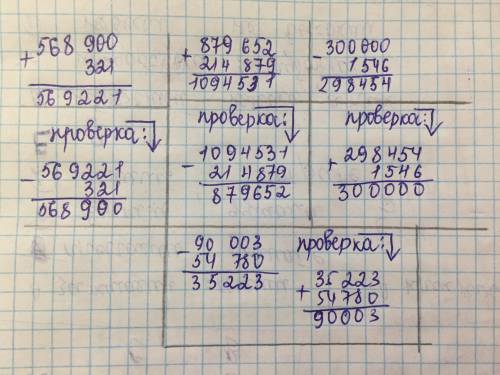 + 568 900
321
569221
проверка:
- 569221
321
568900
+ 879 652
214 879
1094531
проверка:
- 1094531
214879
879652
- 300000
1546
298454
проверка:
+ 298454
1546
300000
- 90 003
54 780
35223
проверка:
+ 35223
54780
90003